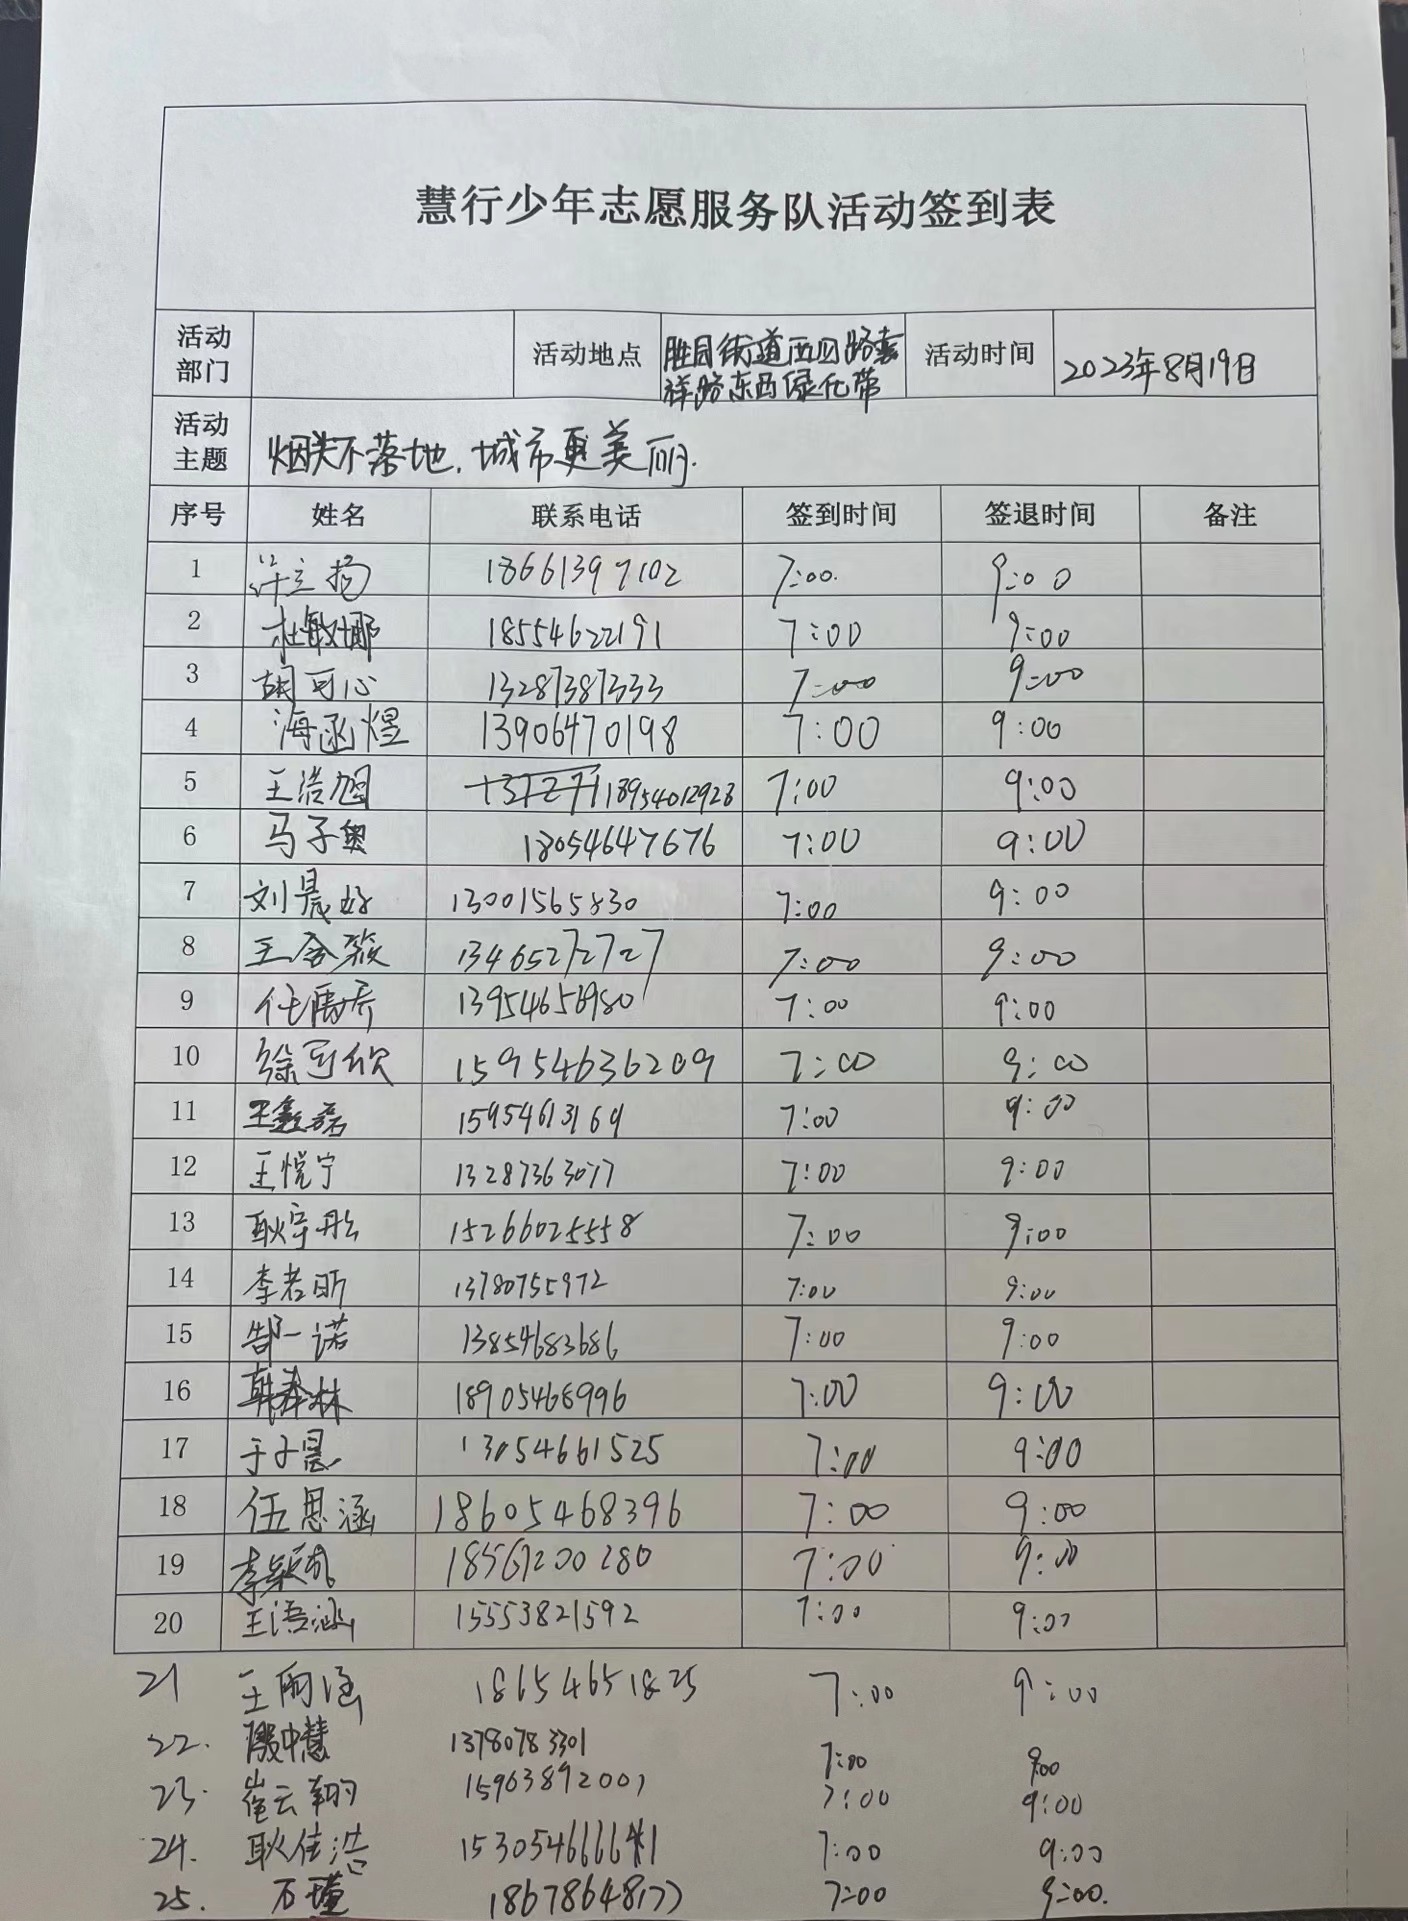 慧行少年志愿服务队活动签到表
活动部门 活动地点 胜园街道西四路嘉祥路东西绿化带 活动时间 2023年8月19日
活动主题 烟头不落地,城市更美丽.
序号 姓名 联系电话 签到时间 签退时间 备注
1 许立扬 18661397102 7:00. 9:00
2 杜敏娜 18554622191 7:00 9:00
3 胡可心 13287387333 7:00 9:00
4 海函煜 13906470198 7:00 9:00
5 王浩旭 13954012923 7:00 9:00
6 马子奥 18054647676 7:00 9:00
7 刘晨好 13001565830 7:00 9:00
8 王 13465272727 7:00 9:00
9 任禹乔 7:00 9:00
10 徐可欣 15954636209 7:00 9:00
11 王鑫磊 15954613169 7:00 9:00
12 王悦宁 13287363077 7:00 9:00
13 耿宇彤 15266025558 7:00 9:00
14 李若昕 13780755972 7:00 9:00
15 郜一诺 13854683686 7:00 9:00
16 韩林 18905468996 7:00 9:00
17 于子晨 13054661525 7:00 9:00
18 伍思涵 18605468396 7:00 9:00
19 李 18561200280 7:00 9:00
20 王语涵 15553821592 7:00 9:00
21 王雨涵 18654651825 7:00 9:00
22. 殷中慧 13780783301 7:00 9:00
23. 崔云翔 15963892007 7:00 9:00
24. 耿佳浩 7:00 9:00
25. 石瑾 18678648177 7:00 9:00.